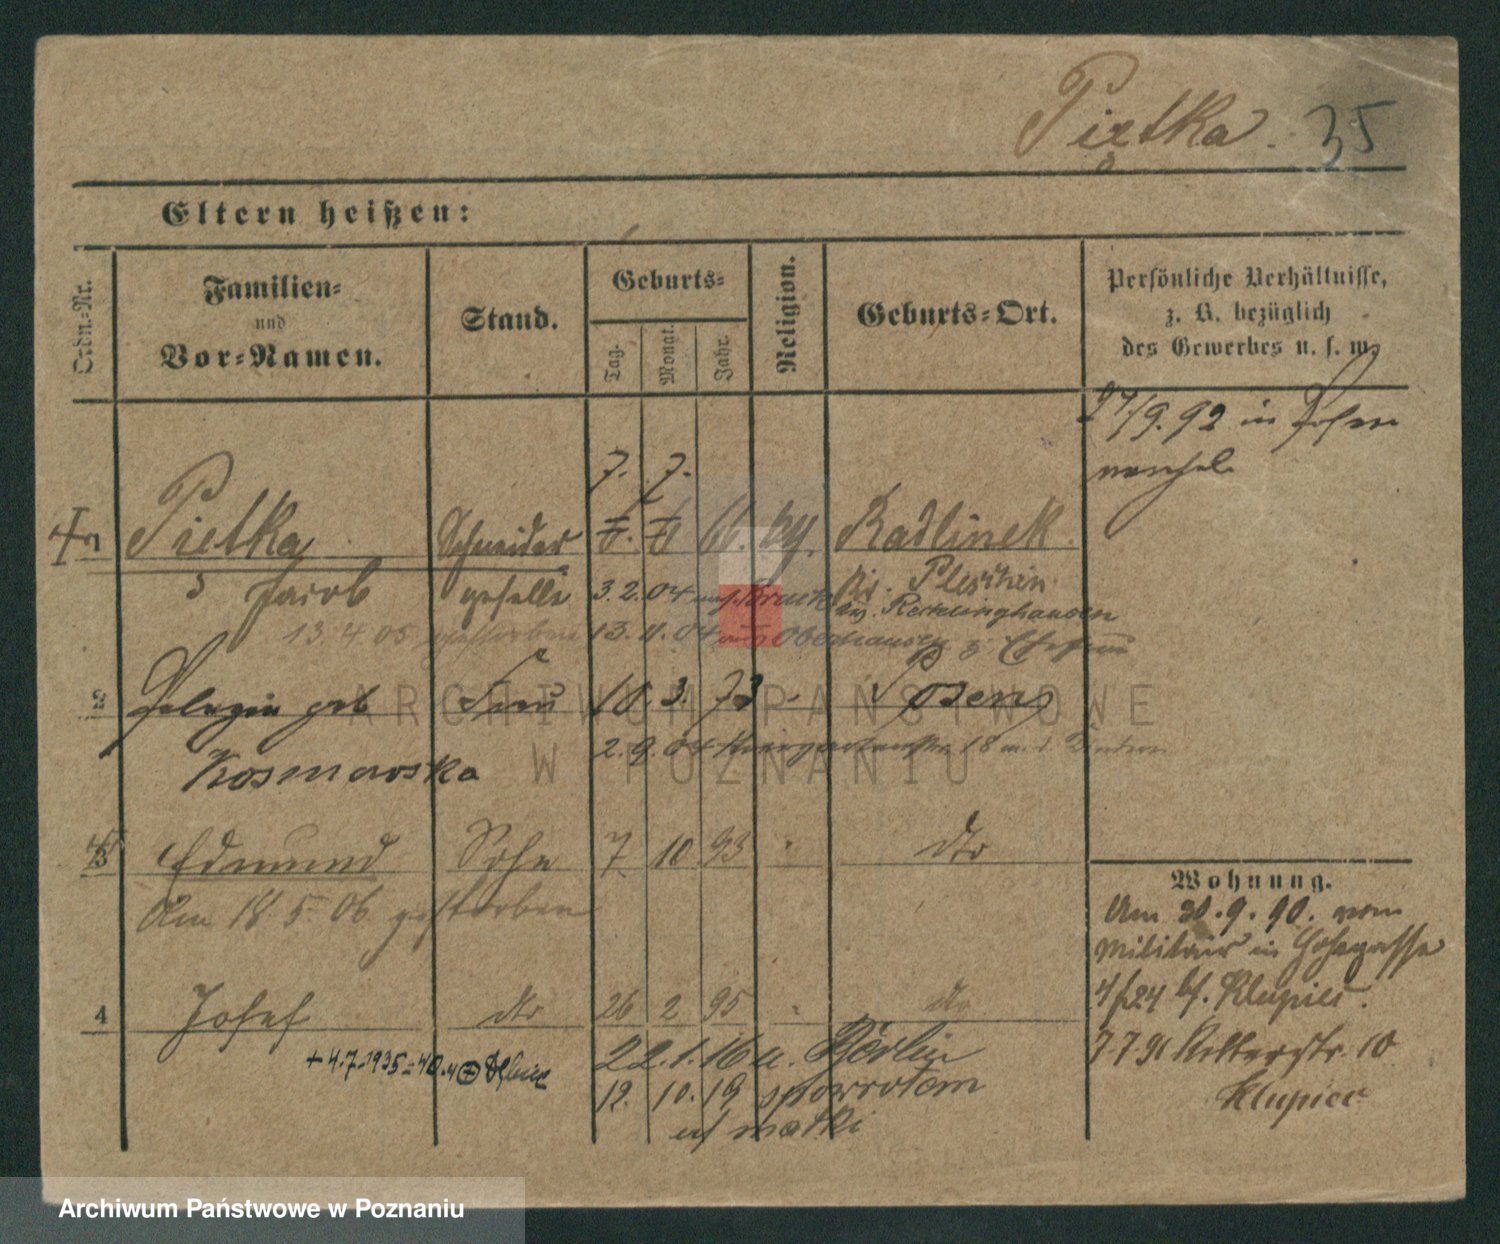 Piętka. 35
Eltern heißen:
Ordn.-Nr.
Familien-
und
Vor-Namen.
Stand.
Geburts-
Tag.
Monat.
Jahr.
Religion.
Geburts-Ort.
Persönliche Verhältnisse,
z. B. bezüglich
des Gewerbes u. s. w.
27/9.92 in Posen
7. 7.
1 Pietka Schneider 66. Radlinek
Jacob geselle 3.2.04 Bruch Kr. Pleschen
Kr. Recklinghausen
13.4.05 gestorben 13.4.04 aus Oberhausen z. Ehefrau
2 Pelagia geb Frau 10. 3. 73 - Posen
2.9.04 18
Kosmowska
3 Edmund Sohn 7 10 93 " dto
Am 18.5.06 gestorben
4 Josef dto 26 2 95 " do
+ 4.7.1935
22.1.16 u. Berlin
12.10.19 spowrotem
u/ matki
Wohnung.
Am 30.9.90. vom
Militair in Hohegasse
4/24 bf. Klupiec.
7.7.91 Ritterstr. 10
Klupiec
ARCHIWUM PAŃSTWOWE
W POZNANIU
Archiwum Państwowe w Poznaniu